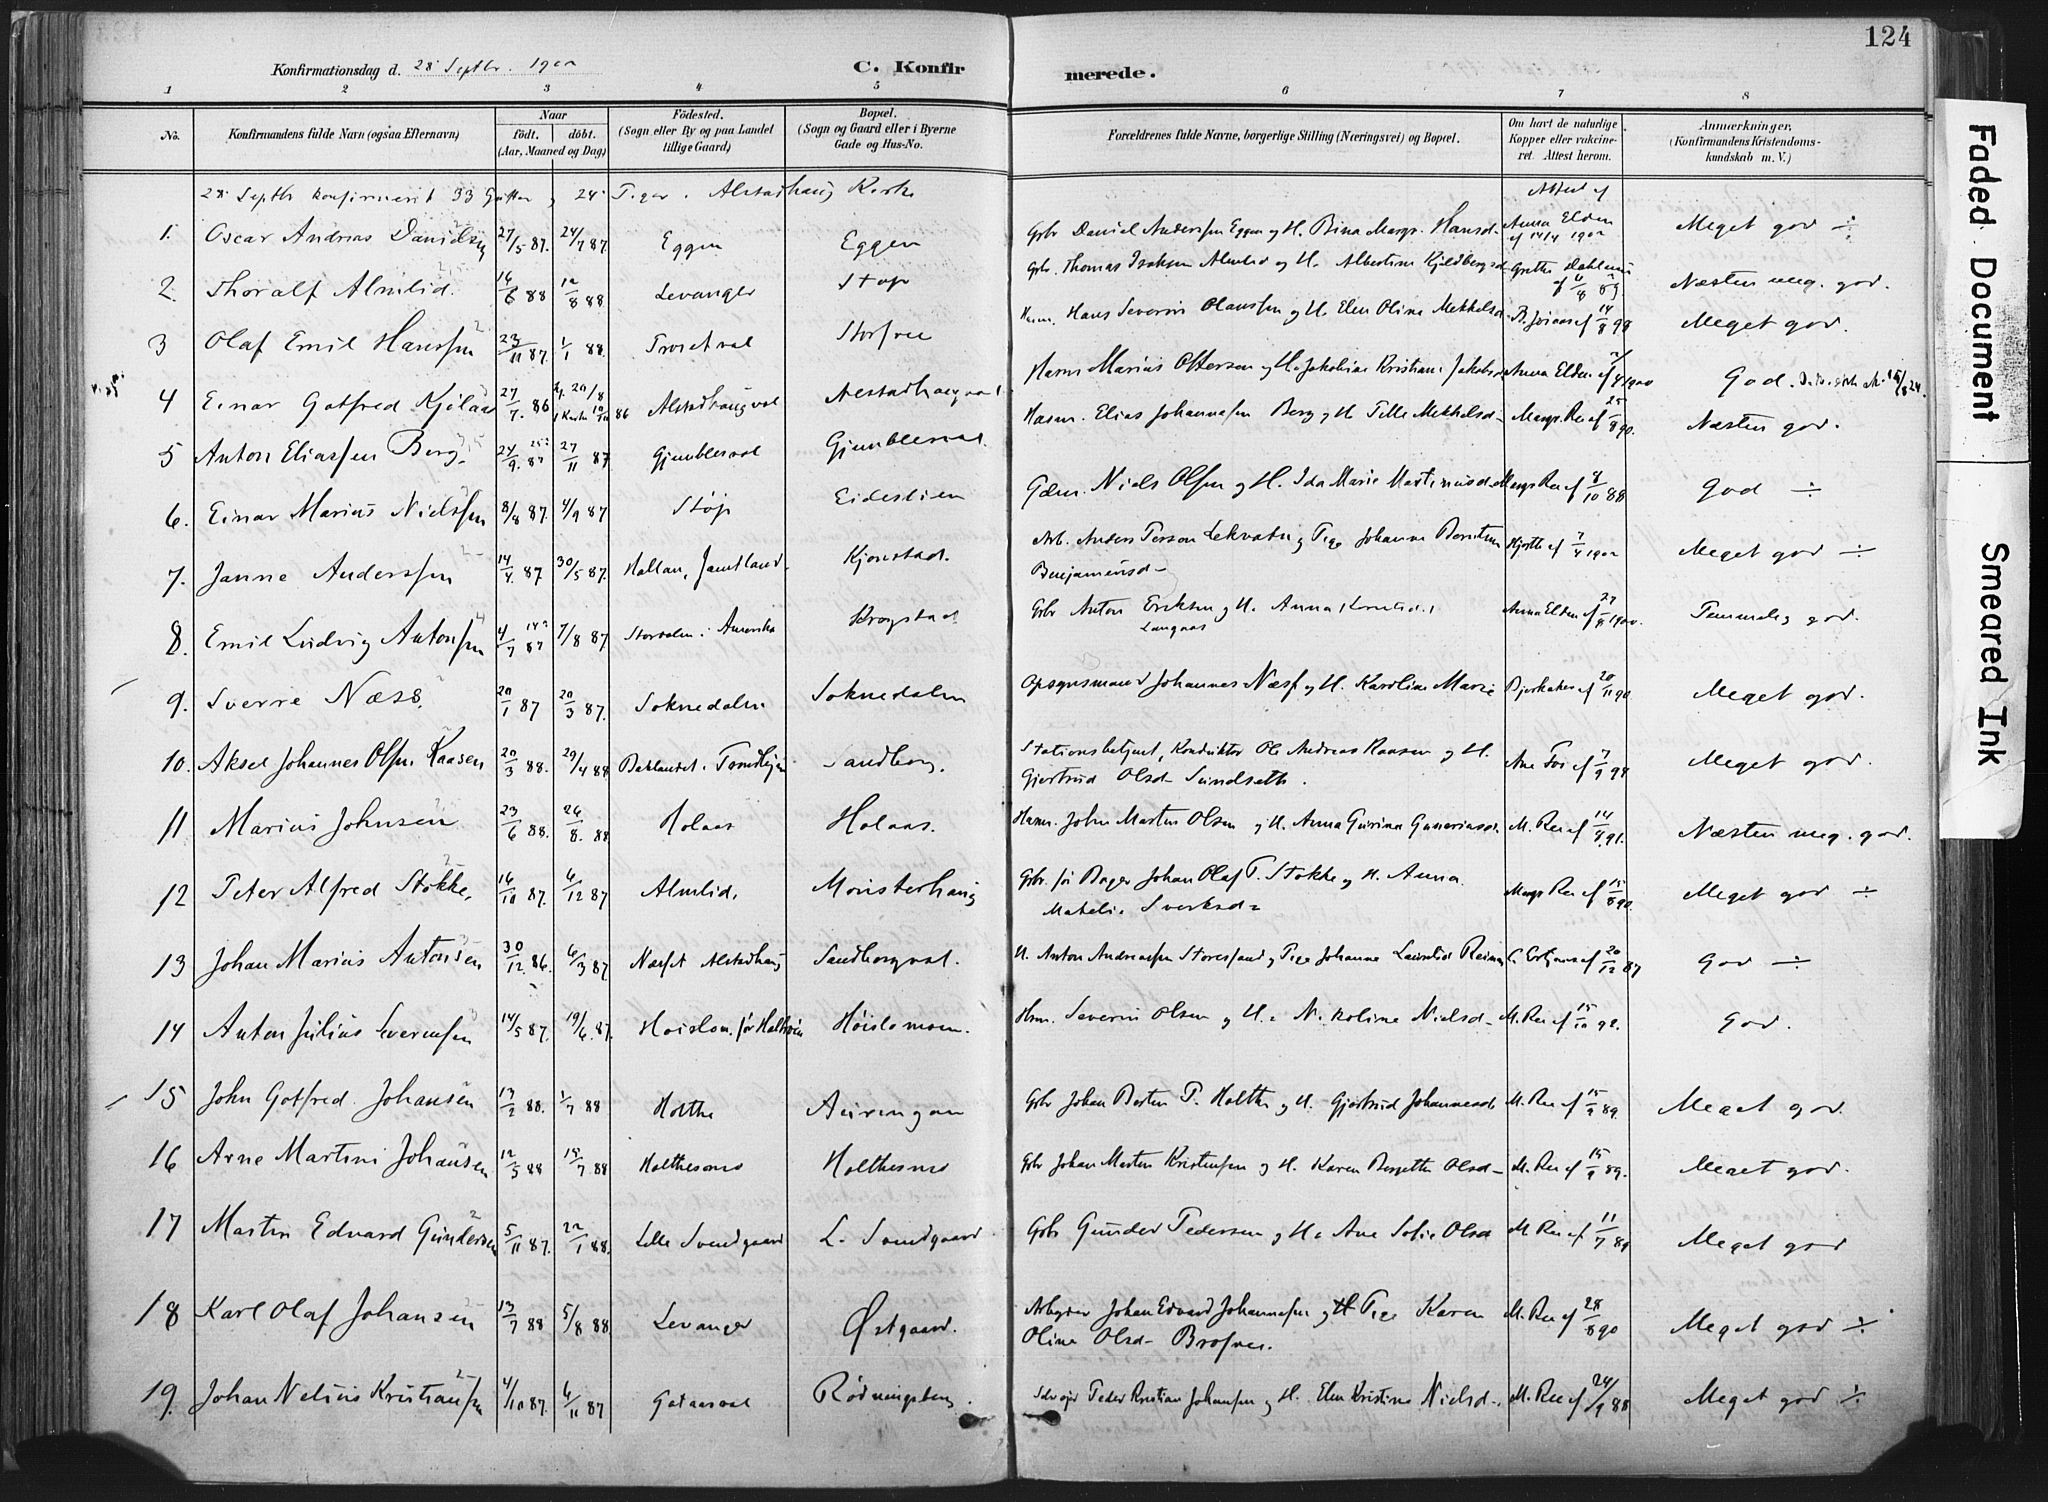 124
Konfirmationsdag d. 28 Septbr. 1902
C. Konfirmerede.
1 2 3 4 5 6 7 8
No.
Konfirmandens fulde Navn (ogsaa Efternavn)
Naar
født. døbt.
(Aar, Maaned og Dag)
Fødested.
(Sogn eller By og paa Landet
tillige Gaard)
Bopæl.
(Sogn og Gaard eller i Byerne
Gade og Hus-No.
Forældrenes fulde Navne, borgerlige Stilling (Næringsvei) og Bopæl.
Om havt de naturlige
Kopper eller vakcine-
ret. Attest herom.
Anmærkninger.
(Konfirmandens Kristendoms-
kundskab m. V.)
28 Septbr konfirmeret 33 Gutter og 24 Piger i Alstadhaug Kirke
Attest af
1. Oscar Andreas Danielsen 27/5 87. 24/7 87 Eggen Eggen Gbr Daniel Anderssen Eggen og H. Bina Margr. Hansd. Anna Elden af 14/4 1902 Meget god ÷
2. Thoralf Almlid. 16/6 88 12/8 88 Levanger Stop Gbr. Thomas Isaksen Almlid og H. Albertine Kjeldbergsd Grethe Dahlum af 6/8 89 Næsten meg. god.
3 Olaf Emil Hanssen 23/11 87. 1/1 88. Trosetval Storfree Hans Severin Olaussen og H. Elen Oline Mekkelsd 14/8 98 Meget god.
4 Einar Gotfred 27/7 86 Alstadhaugval Alstadhaugval Marius Ottersen og H. Jakobine Kristiane Jakobsd Anna Elden af 1900 God.
5 Anton Eliassen Berg. 24/9. 87 27/11 87 Gjemblesval Gjemblesval Husm. Elias Johannessen Berg og H. Pelle Mekkelsd Margr. Ree af 25/8 90. Næsten god.
6. Einar Marius Nielssen 8/8 87. 4/9 87 Støp Eidestien Niels Olsen og H. Ida Marie Martinusd. Margr Ree af 8/10 88 God ÷
7. Janne Anderssen 14/4. 87. 30/5 87. Hallan, Jæmtland. Kjønstad. Arb. Anders Person Lekvatn og Pige Johanna Berntine Benjaminsd Hjorth af 7/4 1902 Meget god ÷
8. Emil Ludvig Antonsen 4/7 87 7/8 87 Amerika Krogstad Gbr Anton Eriksen Langaas og H. Anna Anna Elden af 27/8 1900. Temmelig god.
9. Sverre Næss. 20/1 87 20/3 87. Soknedalen Soknedalen Opsynsmand Johannes Næss og H. Karoline Marie af 20/11 90. Meget god.
10. Aksel Johannes Olsen Kaasen 20/3 88. 29/4 88 Baklandet, Trondhjem Sandborg. Stationsbetjent, Konduktør Ole Andreas Kaasen og H. Gjertrud Olsd Sundseth. Ane Foi af 7/9 98 Meget god.
11 Marius Johnsen 23/6 88. 26/8. 88 Holaas Holaas. Husm. John Martin Olsen og H. Anna Gurina M. Ree af 14/8 91. Næsten meg. god.
12 Peter Alfred Stokke, 16/10 87. 6/12 87 Almlid, Mønsterhaug Gbr. før Bager Johan Olaf P. Stokke og H. Anna Mathlie Sverksd Margr Ree af 15/8 90. Meget god ÷
13 Johan Marius Antonsen 30/12 86. 6/3 87 Næsset Alstadhaug Sandborgval. U. Anton Andreassen Storesand og Pige Johanna af 20/12 87 God ÷
14 Anton Julius Severinsen 14/5 87. 19/6. 87. Høislom. før Høislomoen. Hsm. Severin Olsen og H. Nikoline Nielsd M. Ree af 15/10 92. God.
15 John Gotfred Johansen 13/2 88. 1/7 88 Holthe Auringan Gbr Johan Bertin P. Holthe og H. Gjertrud Johannesd M. Ree af 15/9 89. Meget god.
16 Arne Martin Johansen 12/5 88 15/7 88 Holthesmo Holthesmo Gbr Johan Martin Kristensen og H. Karen Bergitte Olsd M. Ree af 15/9 89. Meget god.
17 Martin Edvard Gundersen 5/11 87. 22/1 88. Lille Svendgaard L. Svendgaard Gbr Gunder Pedersen og H. Ane Sofie Olsd M. Ree af 11/7 89 Meget god
18 Karl Olaf Johansen 13/7 88 5/8 88 Levanger Østgaard. Arbeider Johan Edvard Johannessen og Pige Karen Oline Olsd M. Ree af 28/8 90 Meget god ÷
19. Johan Nelius Kristiansen 4/10 87. 6/11 87 Gotaasval Rødningsberg. Selveier Peder Kristian Johansen og H. Elen Kristine Nielsd. M. Ree af 24/9 88 Meget god ÷
Faded Document
Smeared Ink